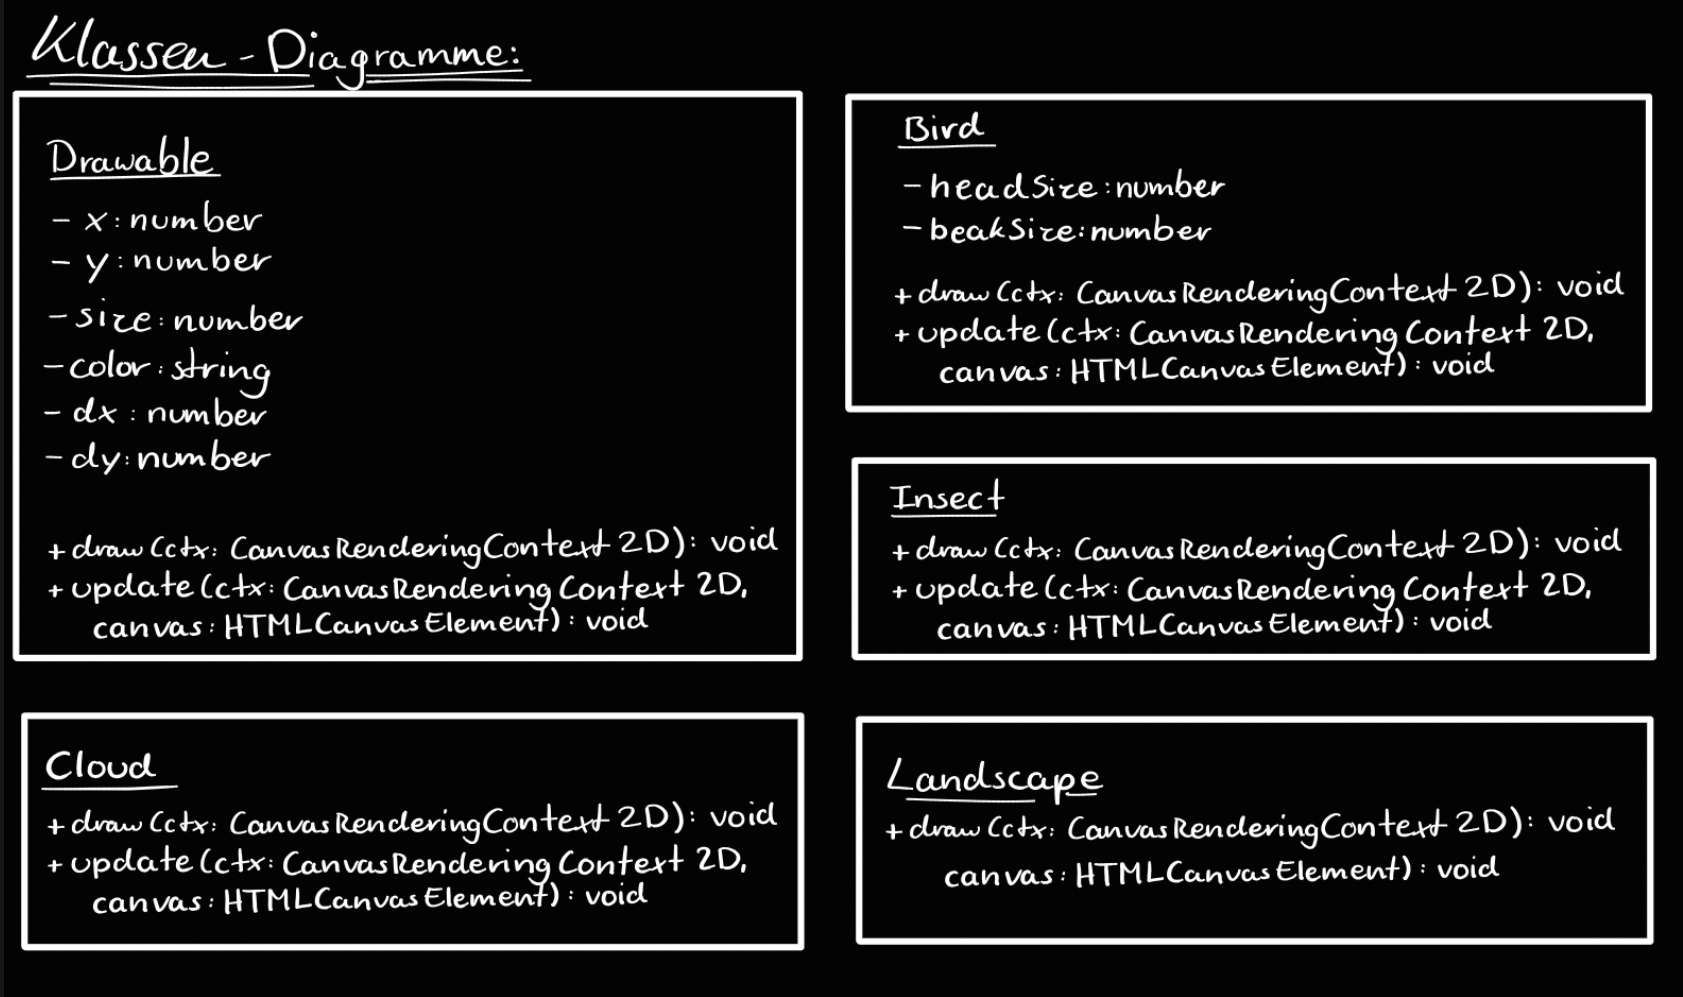 Klassen - Diagramme:
Drawable
- x: number
- y: number
- size: number
- color: string
- dx: number
- dy: number
+ draw (ctx: CanvasRenderingContext 2D): void
+ update (ctx: CanvasRendering Context 2D,
canvas: HTMLCanvas Element): void
Bird
- headSize: number
- beakSize: number
+ draw (ctx: CanvasRenderingContext 2D): void
+ update (ctx: CanvasRendering Context 2D,
canvas: HTMLCanvas Element): void
Insect
+ draw (ctx: CanvasRenderingContext 2D): void
+ update (ctx: CanvasRendering Context 2D,
canvas: HTMLCanvas Element): void
Cloud
+ draw (ctx: CanvasRenderingContext 2D): void
+ update (ctx: CanvasRendering Context 2D,
canvas: HTMLCanvas Element): void
Landscape
+ draw (ctx: CanvasRenderingContext 2D): void
canvas: HTMLCanvas Element): void